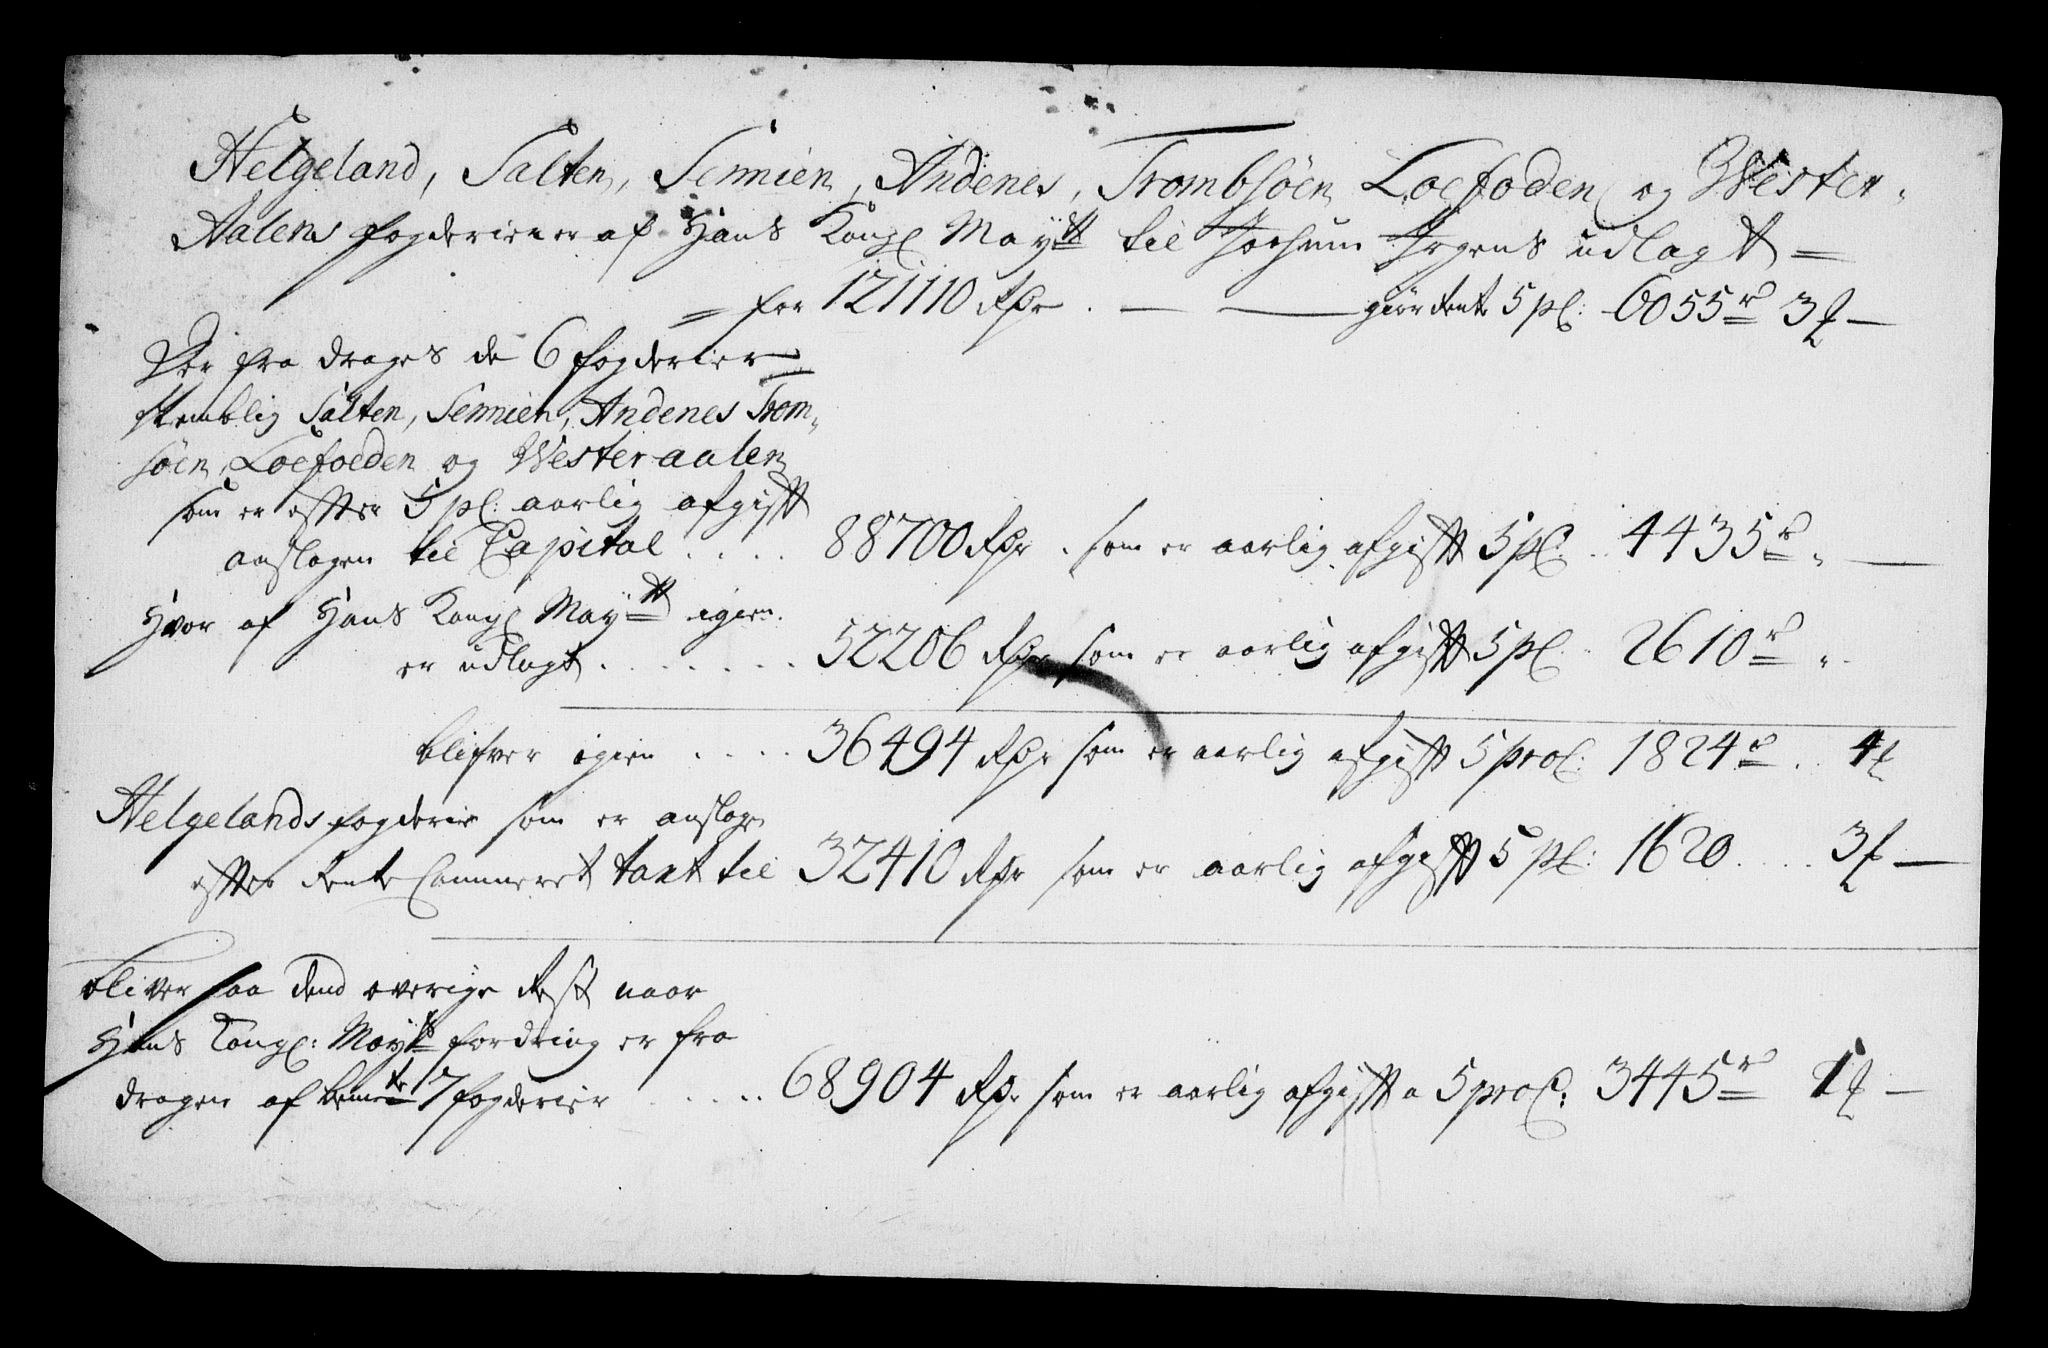 Helgeland, Salten, Sennien, Andenes, Trombsöen Loefoden og Wester-
Aalens fogderier er af Hans Kongl May:tt til Jochum Irgens udlagt =
= for 121110 Rdr. — — giör Rente 5 pC: 6055 r 3 ƶ —
Der fra drages de 6 fogderier
Nemblig Salten, Sennien, Andenes Trom-
söen, Loefoeden og Westeraalen
som er effter 5 pC: aarlig afgifft
anslagen til Capital . . . . 88700 Rdr . som er aarlig afgifft 5 pC. . 4435 r „ —
Hvor af Hans Kongl May:tt igien
er udlagt . . . . . . . 52206 Rdr som er aarlig afgifft 5 pC . 2610 r „ .
blifver igien . . . . 36494 Rdr som er aarlig afgifft 5 proC: 1824 r . 4 ƶ
Helgelands fogderie som er anslagen
effter Rente Cammeret taxt til 32410 Rdr som er aarlig afgifft 5 pC: 1620 . . . . 3 ƶ —
bliver saa dend overige Rest naar
Hans Kongl: May:ts fordring er fra
dragen af bem:te 7 fogderier . . . . . 68904 Rdr som er aarlig afgifft a 5 proC: 3445 r 1 ƶ —